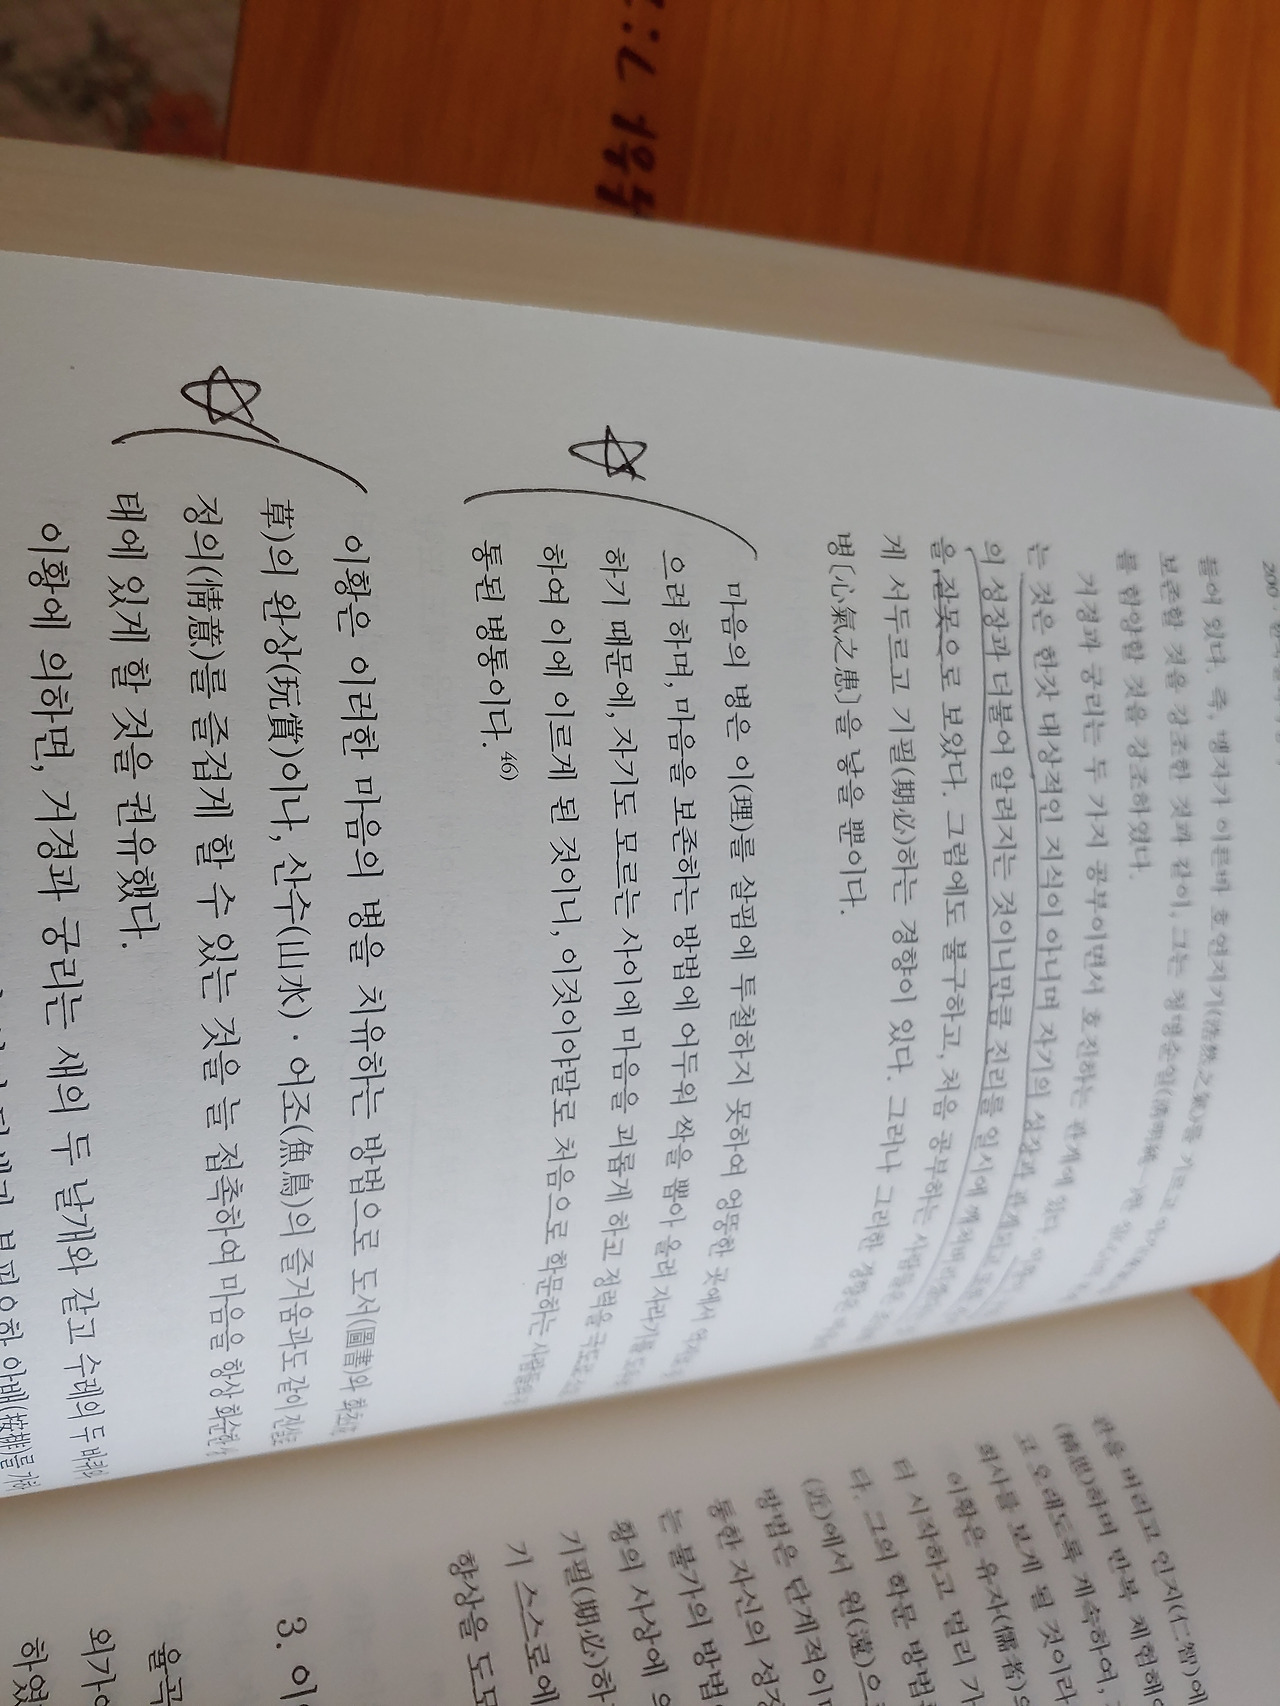 들어 있다. 즉, 맹자가 이른바 호연지기(浩然之氣)를 기르고
보존할 것을 강조한 것과 같이, 그는 정명순일(精明純一)한
를 함양할 것을 강조하였다.
거경과 궁리는 두 가지 공부이면서 호진하는 관계에 있다.
는 것은 한갓 대상적인 지식이 아니며 자기의 성장과 관계되고
의 성장과 더불어 알려지는 것이니만큼 진리를 일시에 깨쳐버
을 잘못으로 보았다. 그럼에도 불구하고, 처음 공부하는 사람들은
게 서두르고 기필(期必)하는 경향이 있다. 그러나 그러한 경향은
병〔心氣之患〕을 낳을 뿐이다.
마음의 병은 이(理)를 살핌에 투철하지 못하여 엉뚱한 곳에서
으려 하며, 마음을 보존하는 방법에 어두워 싹을 뽑아 올려 자라기를
하기 때문에, 자기도 모르는 사이에 마음을 괴롭게 하고 정력을
하여 이에 이르게 된 것이니, 이것이야말로 처음으로 학문하는 사람들의
통된 병통이다.46)
이황은 이러한 마음의 병을 치유하는 방법으로 도서(圖書)와
草)의 완상(玩賞)이나, 산수(山水)·어조(魚鳥)의 즐거움과도 같이
정의(情意)를 즐겁게 할 수 있는 것을 늘 접촉하여 마음을 항상 화순한
태에 있게 할 것을 권유했다.
이황에 의하면, 거경과 궁리는 새의 두 날개와 같고 수레의 두 바퀴와
안배(按排)를
관을 버리고 인지(仁智)에
(精思)하며 반복 체험해
고 오래도록 계속하여,
회사를 보게 될 것이라
이황은 유자(儒者)의
터 시작하고 멀리 가
다. 그의 학문 방법
(近)에서 원(遠)으
방법은 단계적이
통한 자신의 정
는 불가의 방법
황의 사상에
기필(期必)하
기 스스로에
향상을 도모
3. 이
율곡
외가
하였